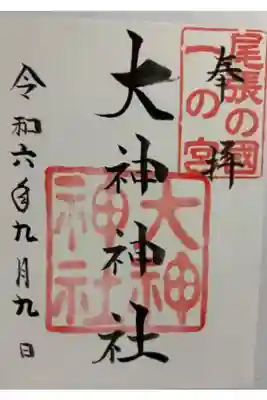 尾張の國
一の宮
奉拝
大神神社
大神
神社
令和六年九月九日